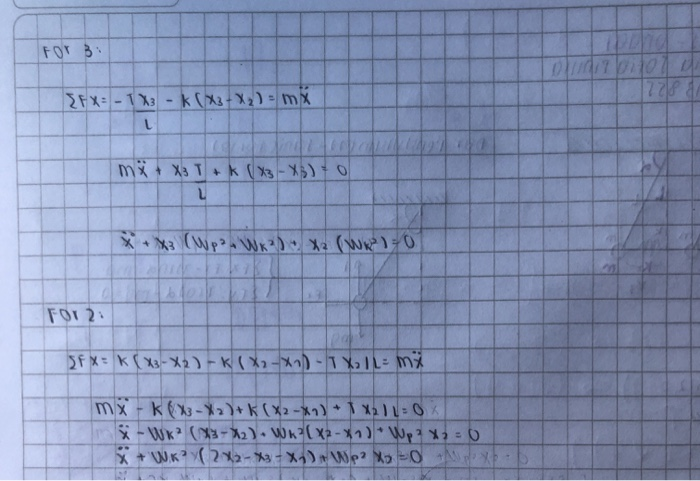 For 3:
ΣFx = - T x3/L - K (x3 - x2) = mẍ
mẍ + x3 T/L + K (x3 - x3) = 0
ẍ + x3 (Wp² + Wk²) + x2 (Wk²) = 0
For 2:
ΣFx = K (x3 - x2) - K (x2 - x1) - T x2/L = mẍ
mẍ - K (x3 - x2) + K (x2 - x1) + T x2/L = 0
ẍ - Wk² (x3 - x2) + Wk² (x2 - x1) + Wp² x2 = 0
ẍ + Wk² (2x2 - x3 - x1) + Wp² x2 = 0